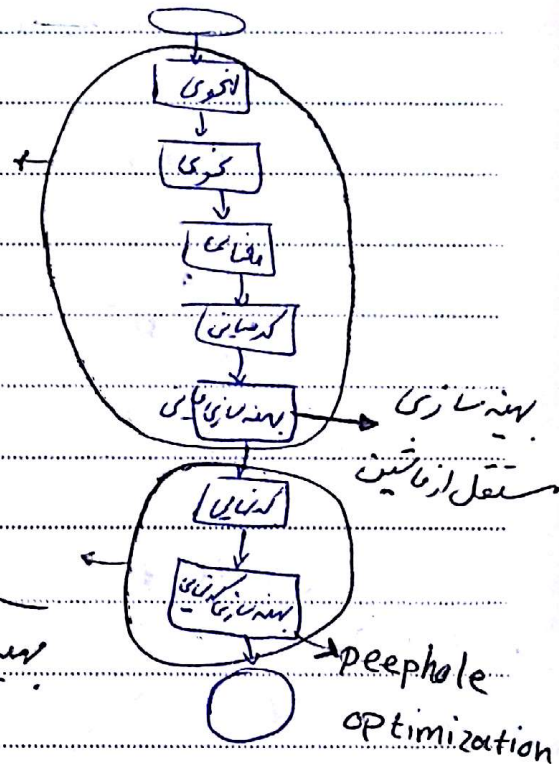 لغوی
نحوی
معنایی
کد میانی
بهینه سازی میانی
بهینه سازی
مستقل از ماشین
کد نهایی
بهینه سازی کد نهایی
peephole
optimization